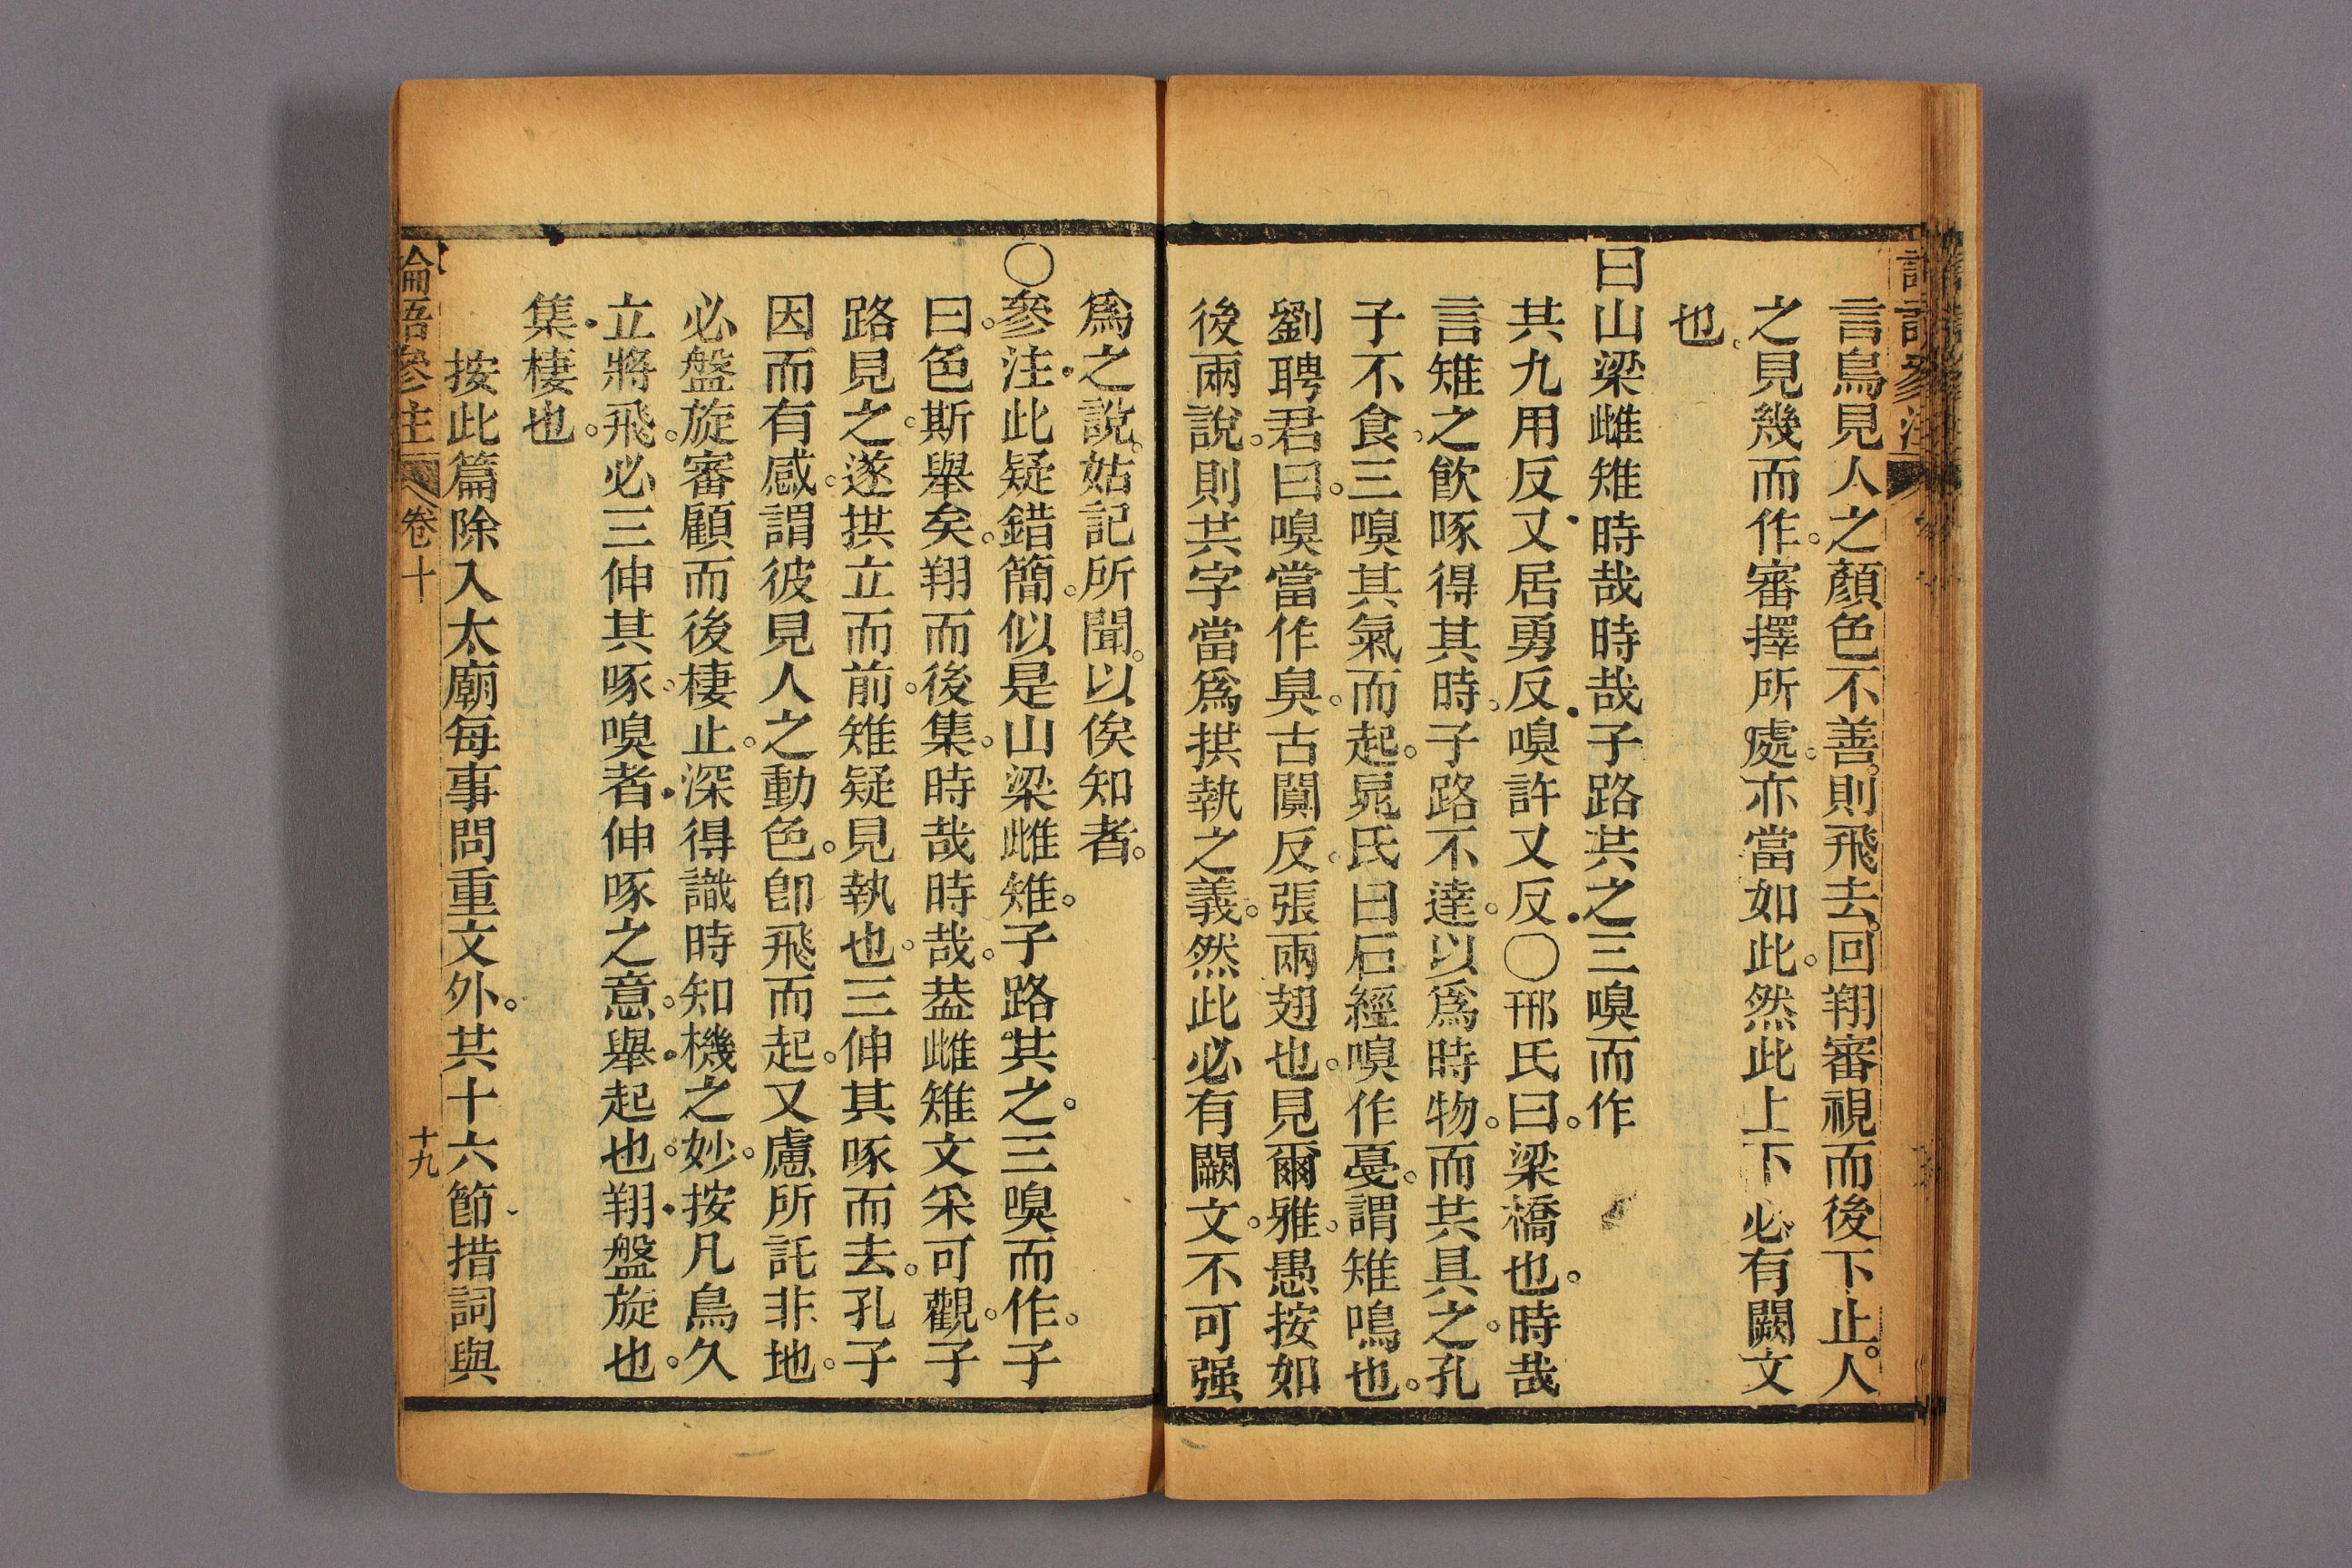 言鳥見人之顏色不善。則飛去。回翔審視而後下止。人
之見幾而作。審擇所處。亦當如此。然此上下必有闕文
也。
曰山梁雌雉時哉時哉子路共之三嗅而作
共九用反又居勇反嗅許又反〇邢氏曰。梁橋也。時哉
言雉之飮啄得其時。子路不達。以爲時物。而共具之。孔
子不食。三嗅其氣而起。晁氏曰石經嗅作戞。謂雉鳴也。
劉聘君曰。嗅當作臭。古闃反。張兩翅也。見爾雅。愚按如
後兩說。則共字當爲拱執之義。然此必有闕文。不可强
爲之說。姑記所聞。以俟知者。
〇參注此疑錯簡。似是山梁雌雉。子路共之。三嗅而作。子
曰。色斯舉矣。翔而後集。時哉時哉。葢雌雉文采可觀。子
路見之。遂拱立而前。雉疑見執也。三伸其啄而去。孔子
因而有感。謂彼見人之動色。卽飛而起。又慮所託非地。
必盤旋審顧而後棲止。深得識時知機之妙。按凡鳥久
立將飛。必三伸其啄。嗅者伸啄之意。舉起也。翔盤旋也。
集棲也。
按此篇除入太廟每事問重文外。其十六節措詞與
論語參注 卷十 十九